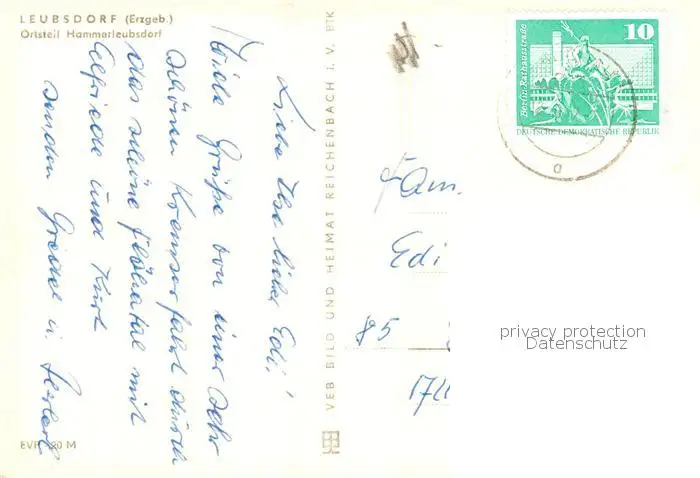 LEUBSDORF (Erzgeb.)
Ortsteil Hammerleubsdorf
Liebe Ilse lieber Edi!
Viele Grüße von einer sehr
schönen Kremserfahrt durch
das schöne Flöhatal mit
Elfriede und Kurt
senden Gretel u.
VEB BILD UND HEIMAT REICHENBACH I. V. BTK
EVP 0,20 M
Berlin, Rathausstraße
10
DEUTSCHE DEMOKRATISCHE REPUBLIK
a
Fam.
Edi
85
privacy protection
Datenschutz